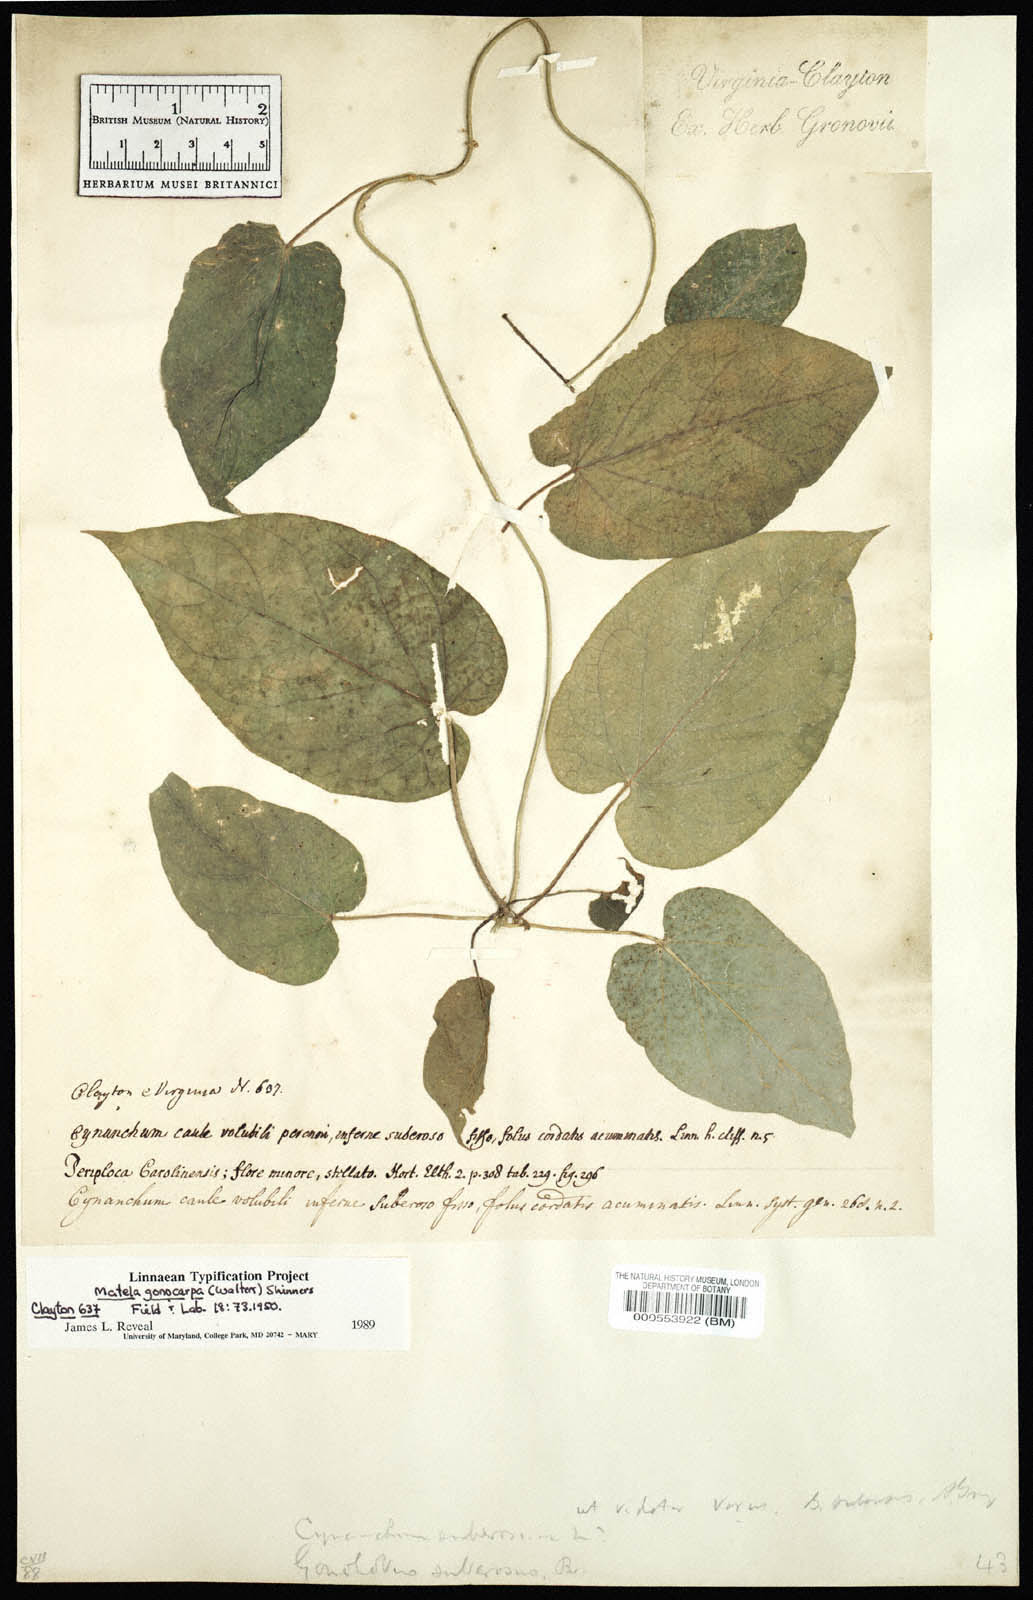 Virginia-Clayton
Ex. Herb. Gronovii
1 2
BRITISH MUSEUM (NATURAL HISTORY)
1 2 3 4 5
HERBARIUM MUSEI BRITANNICI
Clayton e Virginia N. 637.
Cynanchum caule volubili perenni, inferne suberoso fisso, foliis cordatis acuminatis. Linn h. cliff. n. 5
Periploca Carolinensis; flore minore, stellato. Hort. Elth. 2. p. 308 tab. 229. fig. 296
Cynanchum caule volubili inferne suberoso fisso, foliis cordatis acuminatis. Linn. Syst. gen. 260. n. 2.
Linnaean Typification Project
Matela gonocarpa (Walter) Shinners
Clayton 637 Field & Lab. 18: 73. 1950.
James L. Reveal 1989
University of Maryland, College Park, MD 20742 - MARY
THE NATURAL HISTORY MUSEUM, LONDON
DEPARTMENT OF BOTANY
000553922 (BM)
Cynanchum suberosum L.
Gonolobus suberosus, Br.
CVII
88
43